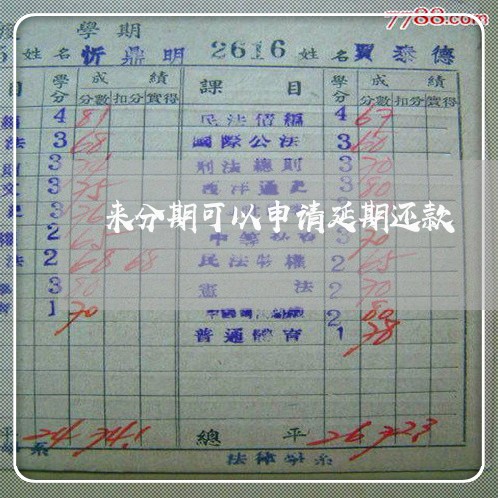 7788.com
學期
姓名 忻鼎明 2616 姓名 賈泰德
目 學分 成績 課目 學分 成績
分數 扣分 實得 分數 扣分 實得
4 81 民法債編 4 67
法 3 68 國際公法 3 60
3 刑法總則 3 70
3 75 西洋通史 3 80
3
来分期可以申请延期还款
2 3 70
法 2 68 68 民法物權 2 65
3 80 憲法 2 70
1 70 2 80
普通體育 1 78
平 24 74.1 總平 26 72.3
系 法律學系